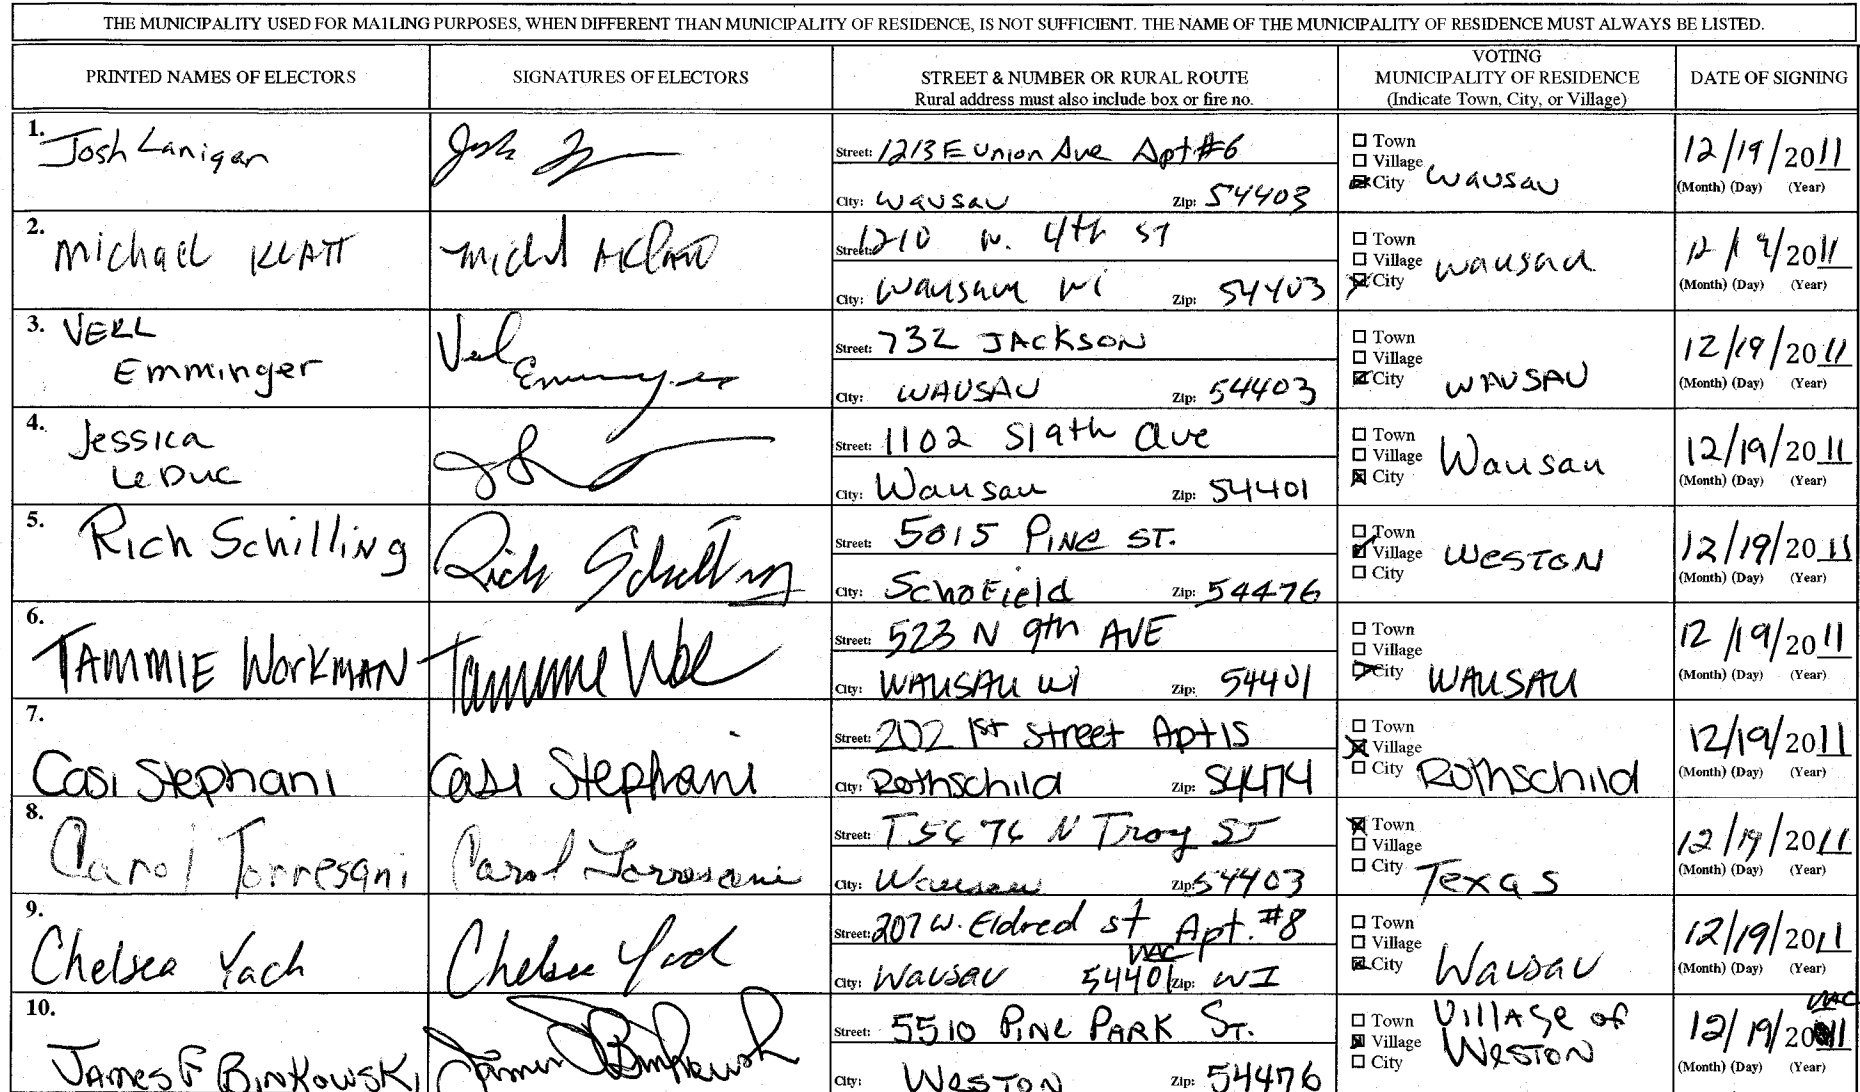 THE MUNICIPALITY USED FOR MA1LING PURPOSES, WHEN DIFFERENT THAN MUNICIPALITY OF RESIDENCE, IS NOT SUFFICIENT. THE NAME OF THE MUNICIPALITY OF RESIDENCE MUST ALWAYS BE LISTED.
PRINTED NAMES OF ELECTORS
SIGNATURES OF ELECTORS
STREET & NUMBER OR RURAL ROUTE
Rural address must also include box or fire no.
VOTING
MUNICIPALITY OF RESIDENCE
(Indicate Town, City, or Village)
DATE OF SIGNING
1. Josh Lanigan
Josh
Street: 1213 E Union Ave Apt #6
City: Wausau Zip: 54403
Town
Village
City Wausau
12/19/2011
(Month) (Day) (Year)
2. Michael KLATT
Street: 1210 N. 4th ST
City: Wausau WI Zip: 54403
Town
Village
City Wausau
12/19/2011
(Month) (Day) (Year)
3. VERL
Emminger
Verl
Emminger
Street: 732 JACKSON
City: WAUSAU Zip: 54403
Town
Village
City WAUSAU
12/19/2011
(Month) (Day) (Year)
4. Jessica
LeDuc
Street: 1102 S 19th Ave
City: Wausau Zip: 54401
Town
Village
City Wausau
12/19/2011
(Month) (Day) (Year)
5. Rich Schilling
Rich Schilling
Street: 5015 Pine ST.
City: Schofield Zip: 54476
Town
Village
City WESTON
12/19/2011
(Month) (Day) (Year)
6. TAMMIE WORKMAN
Tammie
Street: 523 N 9th AVE
City: WAUSAU WI Zip: 54401
Town
Village
City WAUSAU
12/19/2011
(Month) (Day) (Year)
7. Casi Stephani
Casi Stephani
Street: 202 1st Street Apt 15
City: Rothschild Zip: 54474
Town
Village
City Rothschild
12/19/2011
(Month) (Day) (Year)
8. Carol Torresani
Carol Torresani
Street: T5676 N Troy ST
City: Wausau Zip: 54403
Town
Village
City Texas
12/19/2011
(Month) (Day) (Year)
9. Chelsea Yach
Chelsea Yach
Street: 207 W. Eldred st Apt. #8
City: Wausau 54401 Zip: WI
Town
Village
City Wausau
12/19/2011
(Month) (Day) (Year)
10. JAMES F BINKOWSKI
James Binkowski
Street: 5510 PINE PARK ST.
City: WESTON Zip: 54476
Town
Village
City Village of
WESTON
12/19/2011
(Month) (Day) (Year)